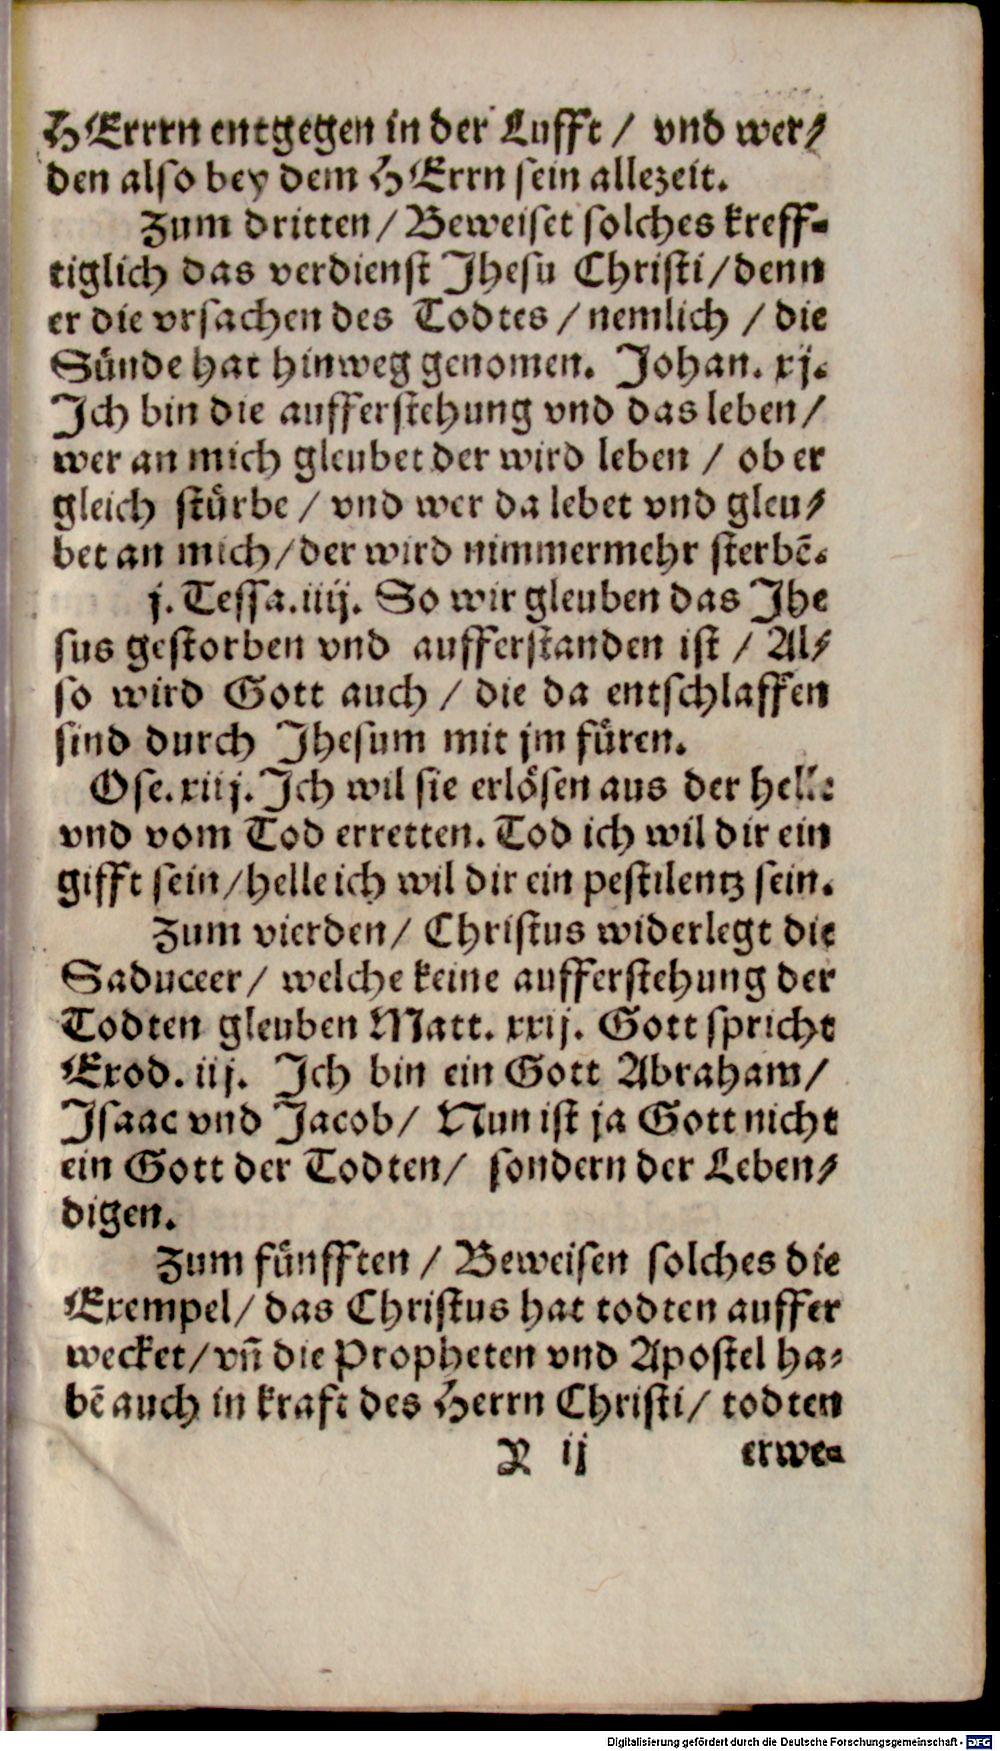 HErrrn entgegen in der Lufft / vnd wer⸗
den also bey dem HErrn sein allezeit.
Zum dritten / Beweiset solches kreff⸗
tiglich das verdienst Jhesu Christi / denn
er die vrsachen des Todtes / nemlich / die
Sünde hat hinweg genomen. Johan. xj.
Jch bin die aufferstehung vnd das leben /
wer an mich gleubet der wird leben / ob er
gleich stürbe / vnd wer da lebet vnd gleu⸗
bet an mich / der wird nimmermehr sterbē.
j. Tessa. iiij. So wir gleuben das Jhe
sus gestorben vnd aufferstanden ist / Al⸗
so wird Gott auch / die da entschlaffen
sind durch Jhesum mit jm füren.
Ose. xiij. Jch wil sie erlösen aus der helle
vnd vom Tod erretten. Tod ich wil dir ein
gifft sein / helle ich wil dir ein pestilentz sein.
Zum vierden / Christus widerlegt die
Saduceer / welche keine aufferstehung der
Todten gleuben Matt. xxij. Gott spricht
Exod. iij. Jch bin ein Gott Abraham /
Jsaac vnd Jacob / Nun ist ja Gott nicht
ein Gott der Todten / sondern der Leben⸗
digen.
Zum fünfften / Beweisen solches die
Exempel / das Christus hat todten auffer
wecket / vn̄ die Propheten vnd Apostel ha⸗
bē auch in kraft des Herrn Christi / todten
R ij erwe⸗
Digitalisierung gefördert durch die Deutsche Forschungsgemeinschaft - DFG